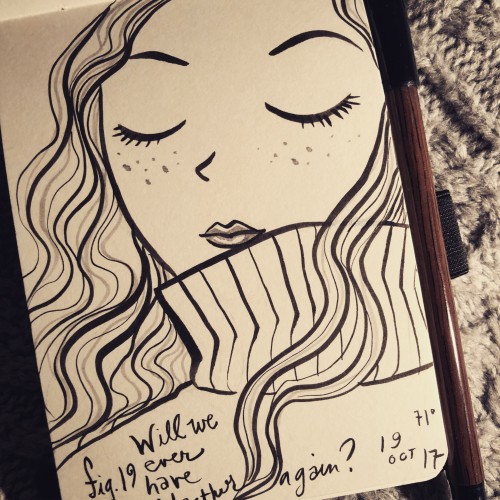 Will we
fig.19 ever
have
again?
71°
19
OCT 17